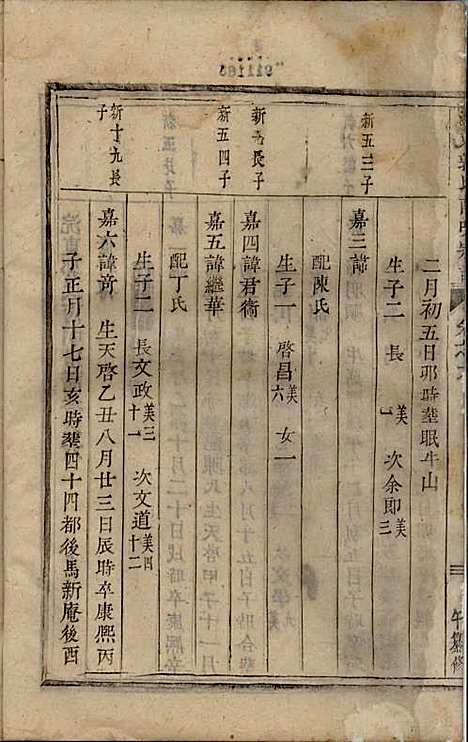 二月初五日卯時塟眠牛山
生子二 長 美一 次余即美三
新五三子
嘉三諱
配陳氏
生子一 啓昌美六 女一
長子
嘉四諱君衛
新五四子
嘉五諱繼華
配丁氏
生子二 長文政美三十一 次文道美四十二
新十九長子
嘉六諱 生天啓乙丑八月廿三日辰時卒康熙丙
子正月十七日亥時塟四十四都後馬新庵後酉
午纂修